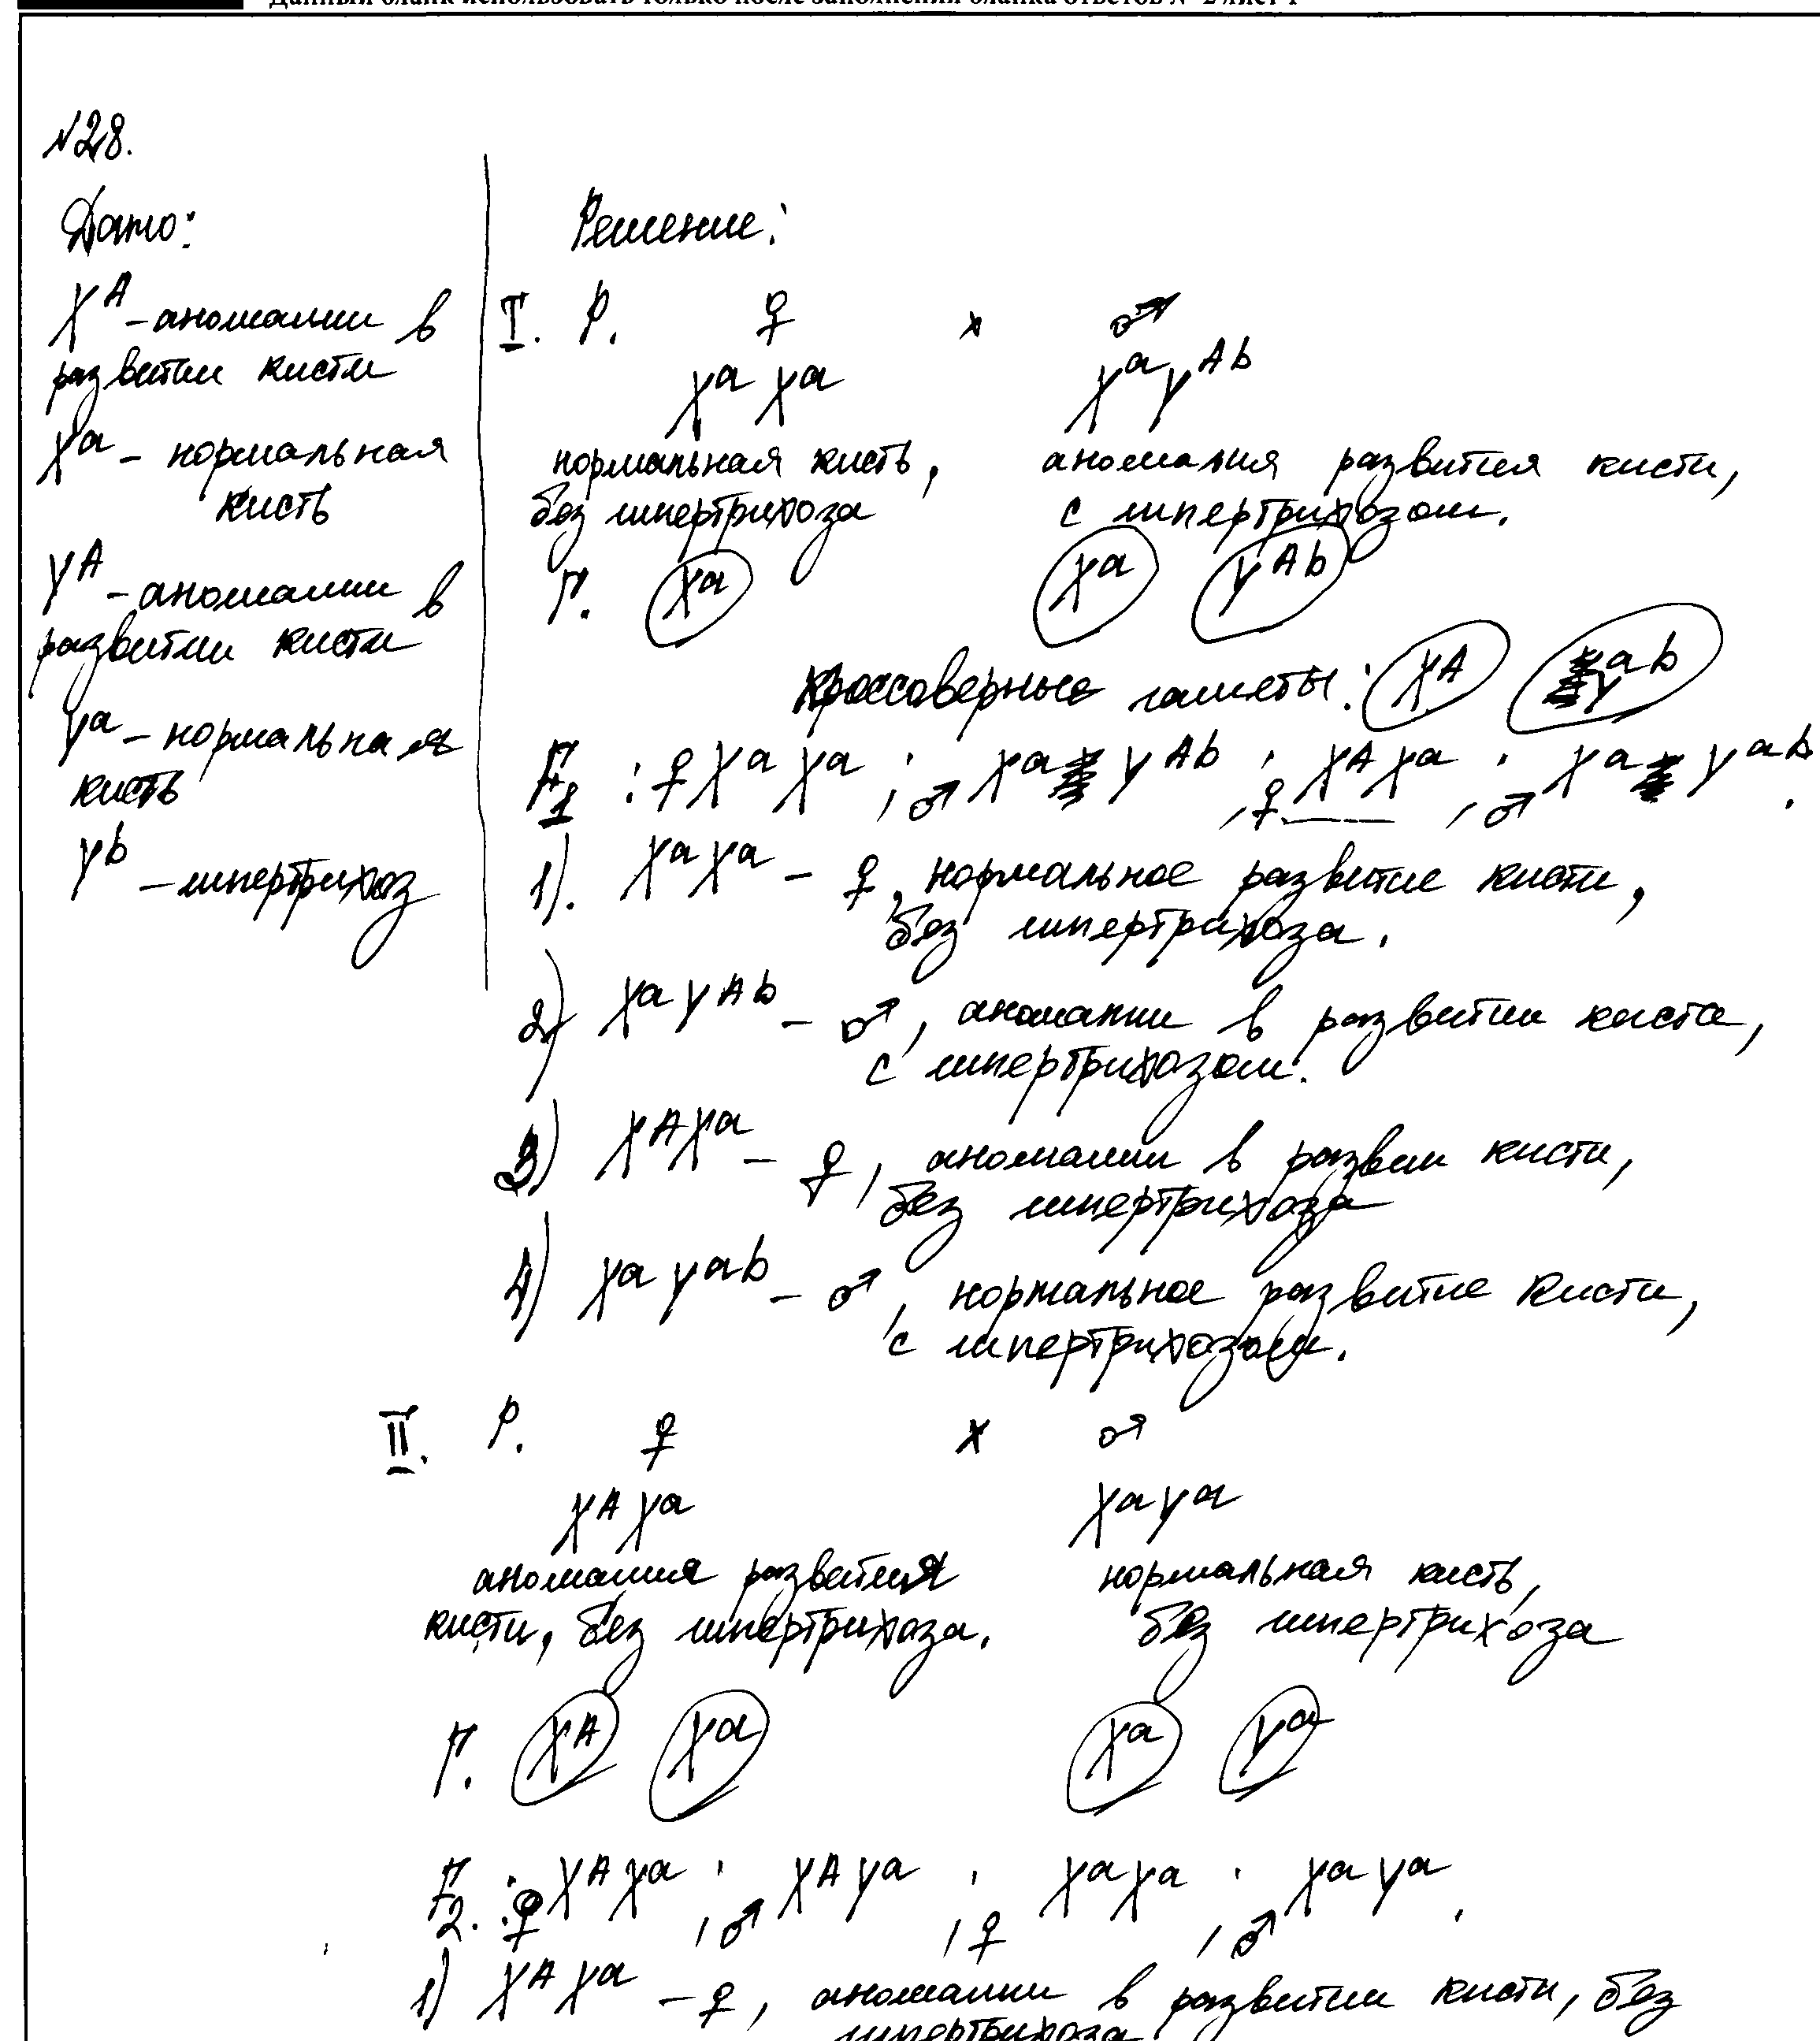 Данный бланк использовать только после заполнения бланка ответов № 2 лист 1
№28.
Дано:
X^A - аномалии в
развитии кисти
X^a - нормальная
кисть
Y^A - аномалии в
развитии кисти
Y^a - нормальная
кисть
Y^b - гипертрихоз
Решение:
I. P. ♀ x ♂
X^a X^a X^a Y^Ab
нормальная кисть, аномалия развития кисти,
без гипертрихоза с гипертрихозом.
Г. X^a X^a Y^Ab
кроссоверные гаметы: X^A Y^ab
F1: ♀ X^a X^a ; ♂ X^a Y^Ab ; ♀ X^A X^a ; ♂ X^a Y^ab.
1). X^a X^a - ♀, нормальное развитие кисти,
без гипертрихоза.
2) X^a Y^Ab - ♂, аномалии в развитии кисти,
с гипертрихозом.
3) X^A X^a - ♀, аномалии в разви кисти,
без гипертрихоза
4) X^a Y^ab - ♂, нормальное развитие кисти,
с гипертрихозом.
II. P. ♀ x ♂
X^A X^a X^a Y^a
аномалия развития нормальная кисть,
кисти, без гипертрихоза. без гипертрихоза
Г. X^A X^a X^a Y^a
F2: ♀ X^A X^a ; ♂ X^A Y^a ; ♀ X^a X^a ; ♂ X^a Y^a.
1) X^A X^a - ♀, аномалии в развитии кисти, без
гипертрихоза